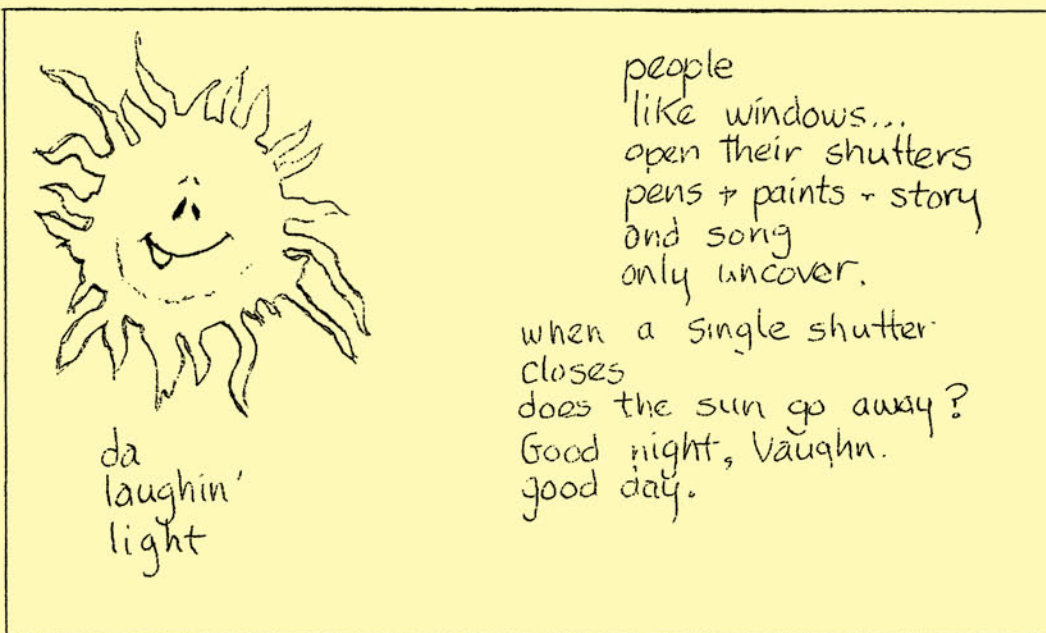 people
like windows...
open their shutters
pens + paints + story
and song
only uncover.
when a single shutter
closes
does the sun go away?
Good night, Vaughn.
good day.
da
laughin'
light